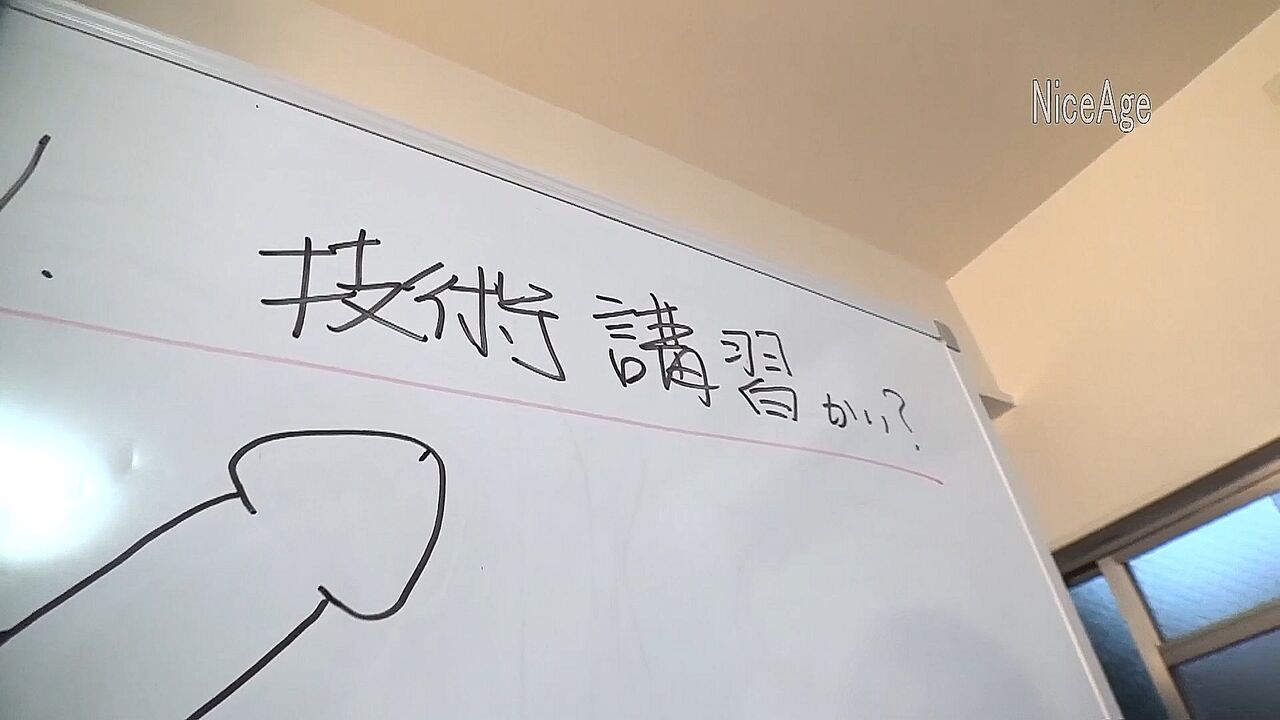 NiceAge
技術講習かい?